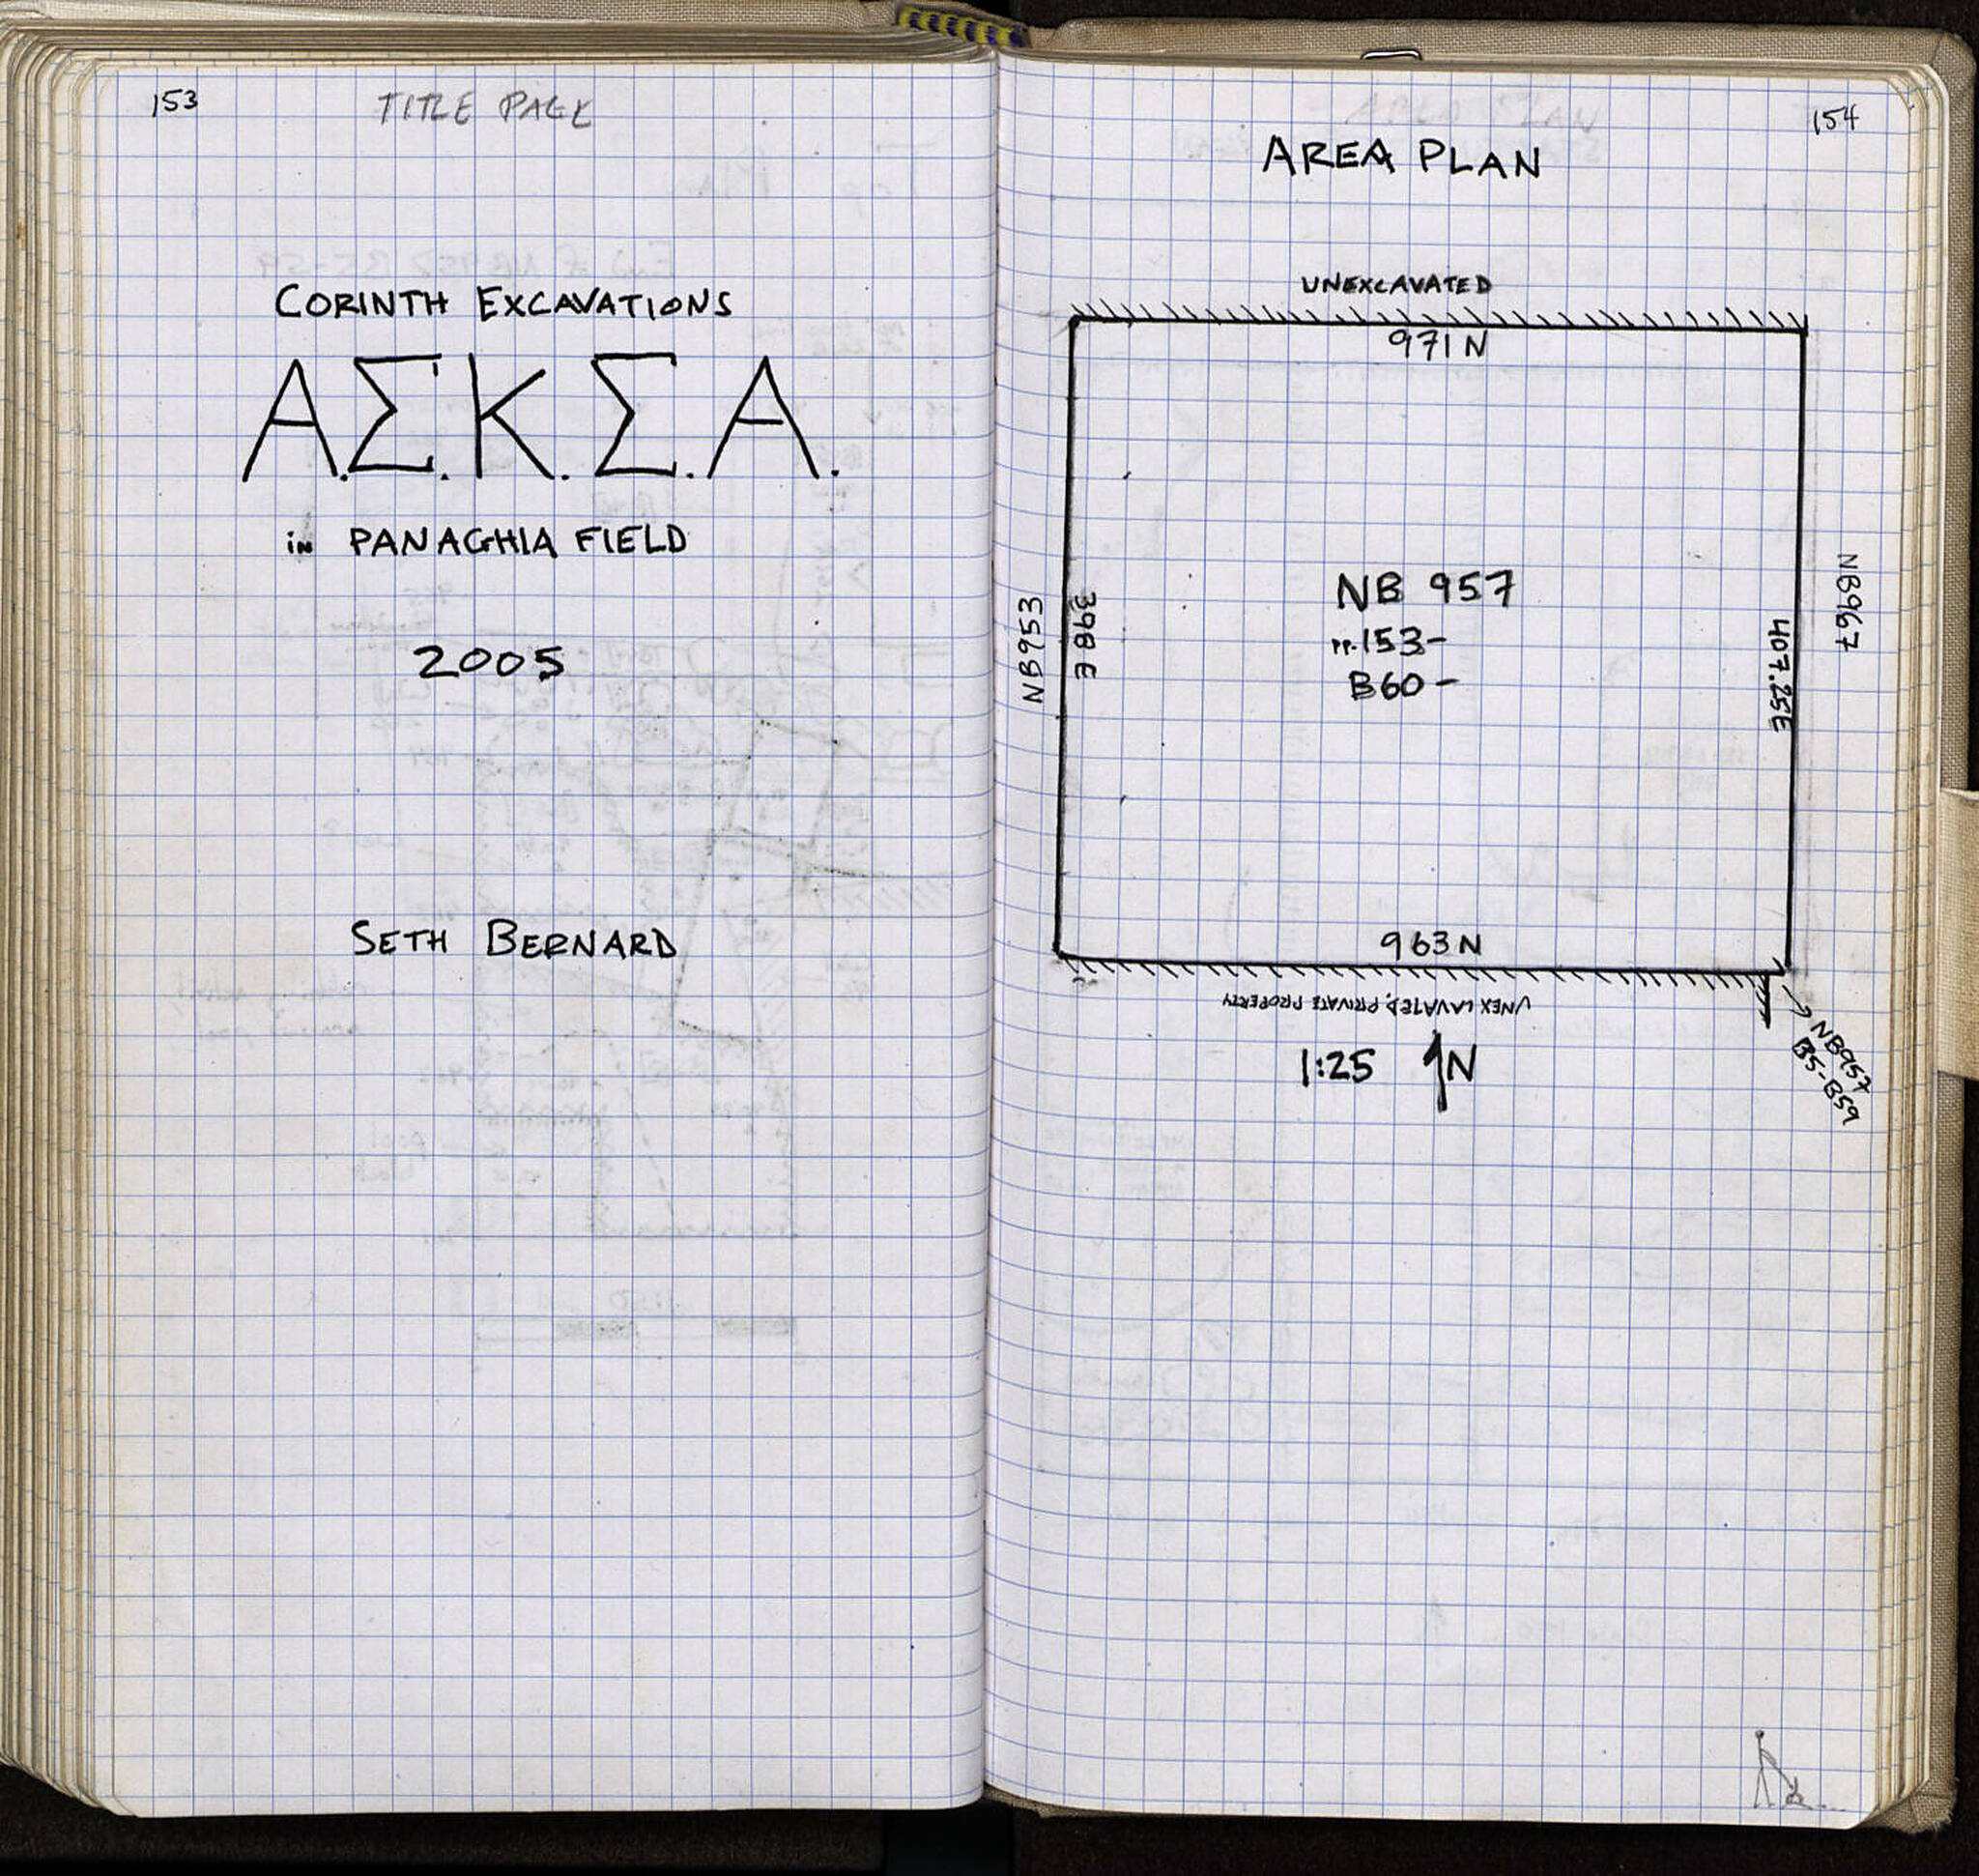 153
TITLE PAGE
CORINTH EXCAVATIONS
Α.Σ.Κ.Σ.Α.
in PANAGHIA FIELD
2005
SETH BERNARD
154
AREA PLAN
UNEXCAVATED
971 N
NB953
398 E
NB 957
pp. 153-
B60-
407.25E
NB967
963 N
UNEXCAVATED, PRIVATE PROPERTY
NB957
B5-B59
1:25 N